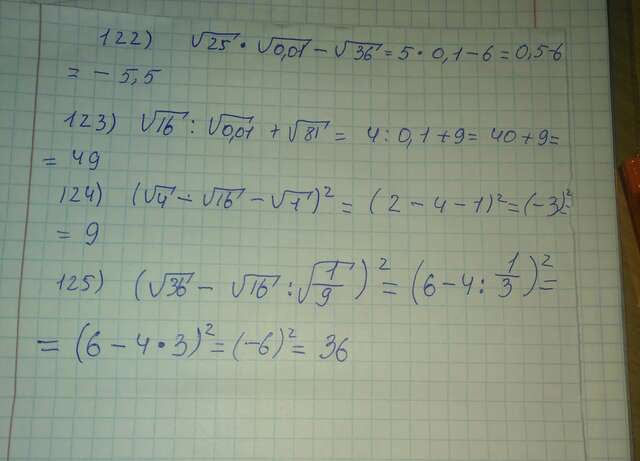 122) √25 · √0,01 − √36 = 5 · 0,1 − 6 = 0,5-6
= − 5,5
123) √16 : √0,01 + √81 = 4 : 0,1 + 9 = 40 + 9 =
= 49
124) (√4 − √16 − √1)² = (2 − 4 − 1)² = (−3)² =
= 9
125) (√36 − √16 : √1/9)² = (6 − 4 : 1/3)² =
= (6 − 4 · 3)² = (−6)² = 36